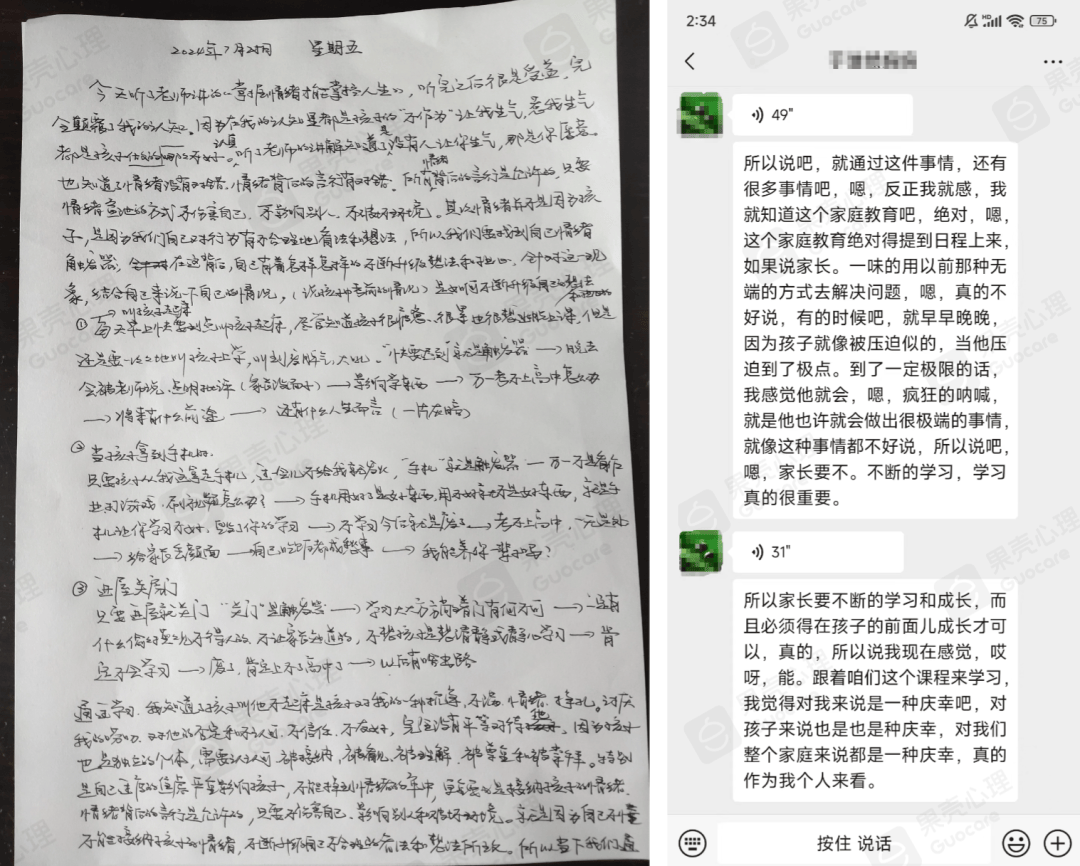 2024年7月2日 星期五
今天听了老师讲的《掌握情绪才能掌控人生》,听完之后很是受益,完
全颠覆了我的认知。因为在我的认知里都是孩子的"不作为"让我生气,惹我生气
都是孩子做的不好。听了老师的讲解知道了是没有人让你生气,那是你愿意。
也知道了情绪没有对错,情绪背后的言行有对错。所有情绪背后的言行是允许的,只要
情绪宣泄的方式不伤害自己,不影响别人,不破坏环境。其次情绪并不是因为孩
子,是因为我们自己对行为有不合理地看法和想法,所以我们要找到自己情绪
触发器,在这背后,自己有着怎样的不断升级想法和担心,针对这一现
象,结合自己来说一下自己的情况,(说孩子中考前的情况)是如何不断升级自己的想法
①叫孩子起床
每天早上快要到点叫孩子起床,尽管知道孩子很疲惫、很累也很想让他上课,但是
还是要一次次地叫孩子上学,叫到后解气,大吼。"快要迟到"就是触发器 → 晚去
会被老师说、点名批评(家长没面子) → 影响学东西 → 万一考不上高中怎么办
→ 将来有什么前途 → 还有什么人生而言(一片灰暗)
②当孩子拿到手机时
只要孩子从我这拿走手机,这会儿不给我就发火,"手机"就是触发器 — 万一不是看作
业打游戏、刷视频怎么办? → 手机用好了是好东西,用不好就不是好东西,就是手
机让你学习不好,毁了你的学习 → 不学习今后就是废了 → 考不上高中,一无是处
→ 给家长丢颜面 — 自己吃饭都成愁事 → 我能养你一辈子吗?
③进屋关房门
只要进屋就关门 "关门"是触发器 → 学习大大方方开着门有何不可 → 没有
什么偷偷摸摸不得人的,不让家长知道的,不想孩子是想清静或静心学习 → 肯
定不会学习 → 废了,肯定上不了高中了 → 以后有啥出路
通过学习,我知道了孩子叫他不起床是孩子对我的一种抗争、不满、情绪、挣扎。讨厌
我的唠叨、对他的否定和不认可、不信任、不友好,完全没有平等对待他,因为孩子
也是独立的个体,需要认可、被接纳、被看见、被理解、被尊重和被尊重。特别
是自己主角的焦虑严重影响孩子,不能掉到情绪的牢中,更重要的是接纳孩子的情绪,
情绪背后的言行是允许的,只要不伤害自己、影响别人和破坏环境。就是因为自己不懂
不能接纳孩子的情绪,不断升级自己不合理的看法和想法所致。所以当下我们是
果壳心理
Guocare
2:34
75
49"
所以说吧,就通过这件事情,还有
很多事情吧,嗯,反正我就感,我
就知道这个家庭教育吧,绝对,嗯,
这个家庭教育绝对得提到日程上来,
如果说家长。一味的用以前那种无
端的方式去解决问题,嗯,真的不
好说,有的时候吧,就早早晚晚,
因为孩子就像被压迫似的,当他压
迫到了极点。到了一定极限的话,
我感觉他就会,嗯,疯狂的呐喊,
就是他也许就会做出很极端的事情,
就像这种事情都不好说,所以说吧,
嗯,家长要不。不断的学习,学习
真的很重要。
31"
所以家长要不断的学习和成长,而
且必须得在孩子的前面儿成长才可
以,真的,所以说我现在感觉,哎
呀,能。跟着咱们这个课程来学习,
我觉得对我来说是一种庆幸吧,对
孩子来说也是也是种庆幸,对我们
整个家庭来说都是一种庆幸,真的
作为我个人来看。
按住 说话